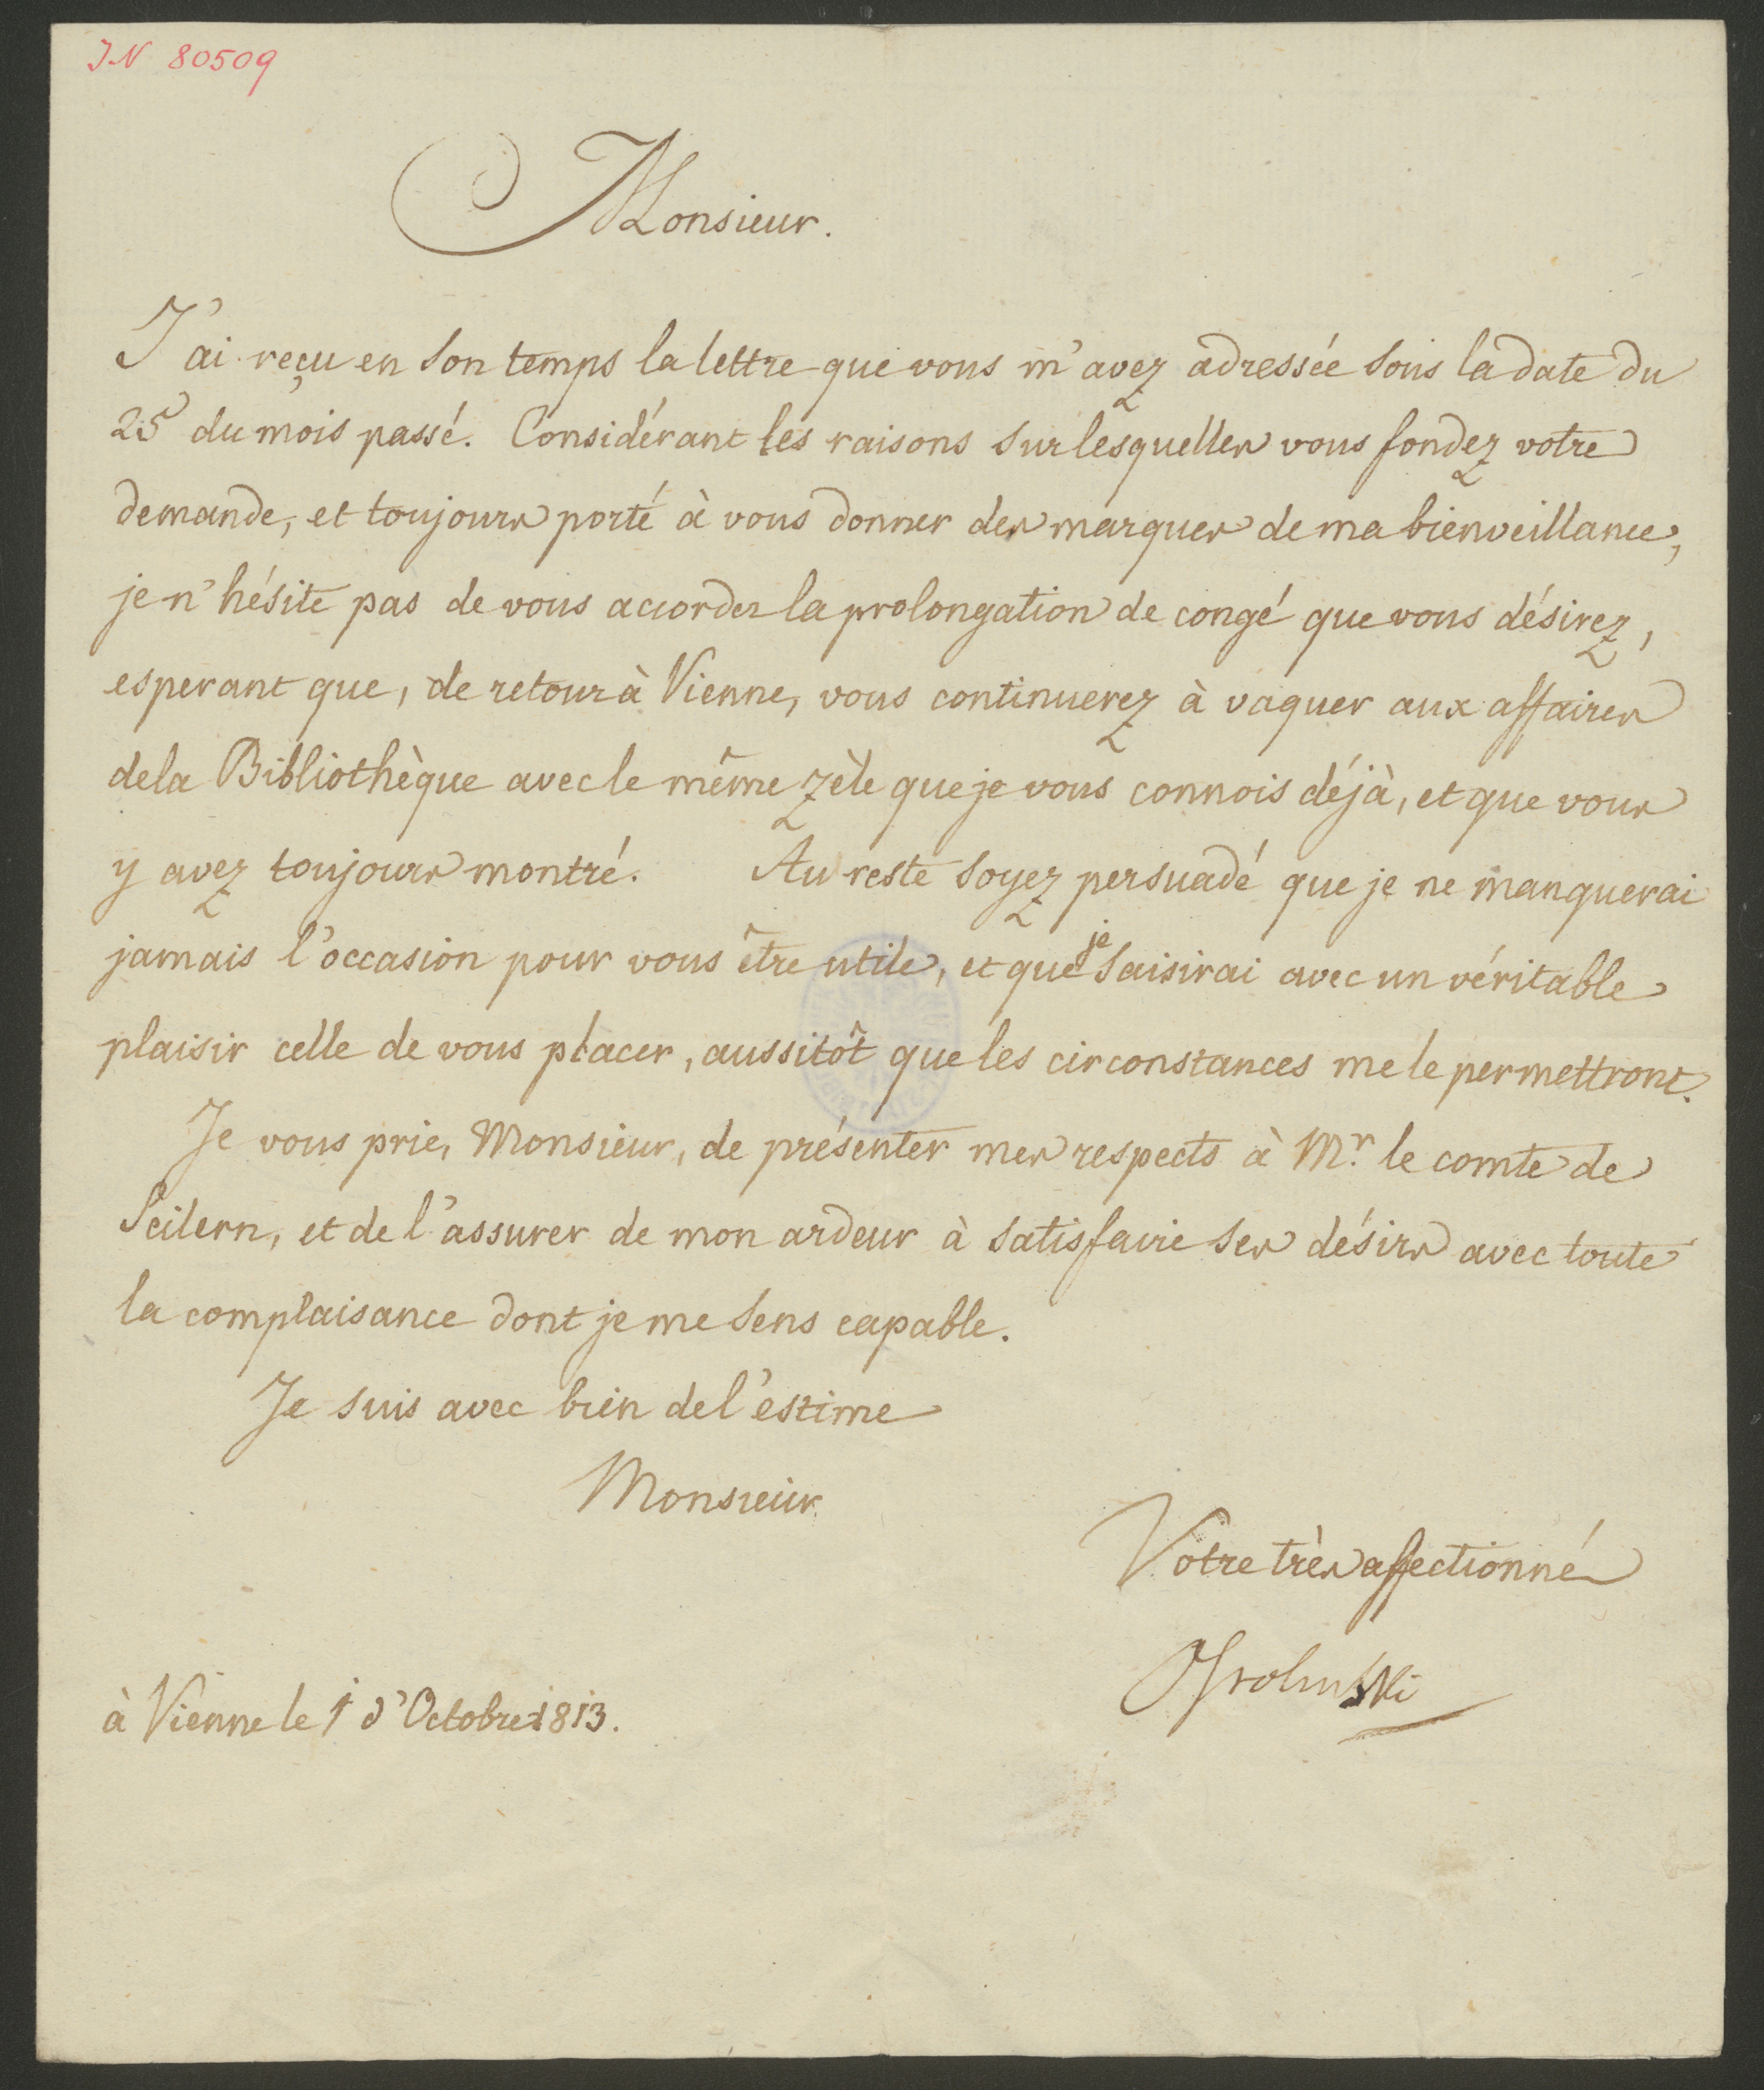 IN 80509
Monsieur.
J'ai reçu en son temps la lettre que vous m'avez adressée sous la date du
25 du mois passé. Considérant les raisons sur lesquelles vous fondez votre
demande, et toujours porté à vous donner des marques de ma bienveillance,
je n'hésite pas de vous accorder la prolongation de congé que vous désirez,
esperant que, de retour à Vienne, vous continuerez à vaquer aux affaires
de la Bibliothèque avec le même zèle que je vous connois déjà, et que vous
y avez toujours montré. Au reste soyez persuadé que je ne manquerai
jamais l'occasion pour vous être utile, et que je saisirai avec un véritable
plaisir celle de vous placer, aussitôt que les circonstances me le permettront.
Je vous prie, Monsieur, de présenter mes respects à Mr. le comte de
Seilern, et de l'assurer de mon ardeur à satisfaire ses désirs avec toute
la complaisance dont je me sens capable.
Je suis avec bien de l'estime
Monsieur
Votre très affectionné
Ossolinski
à Vienne le 1 d'Octobre 1813.